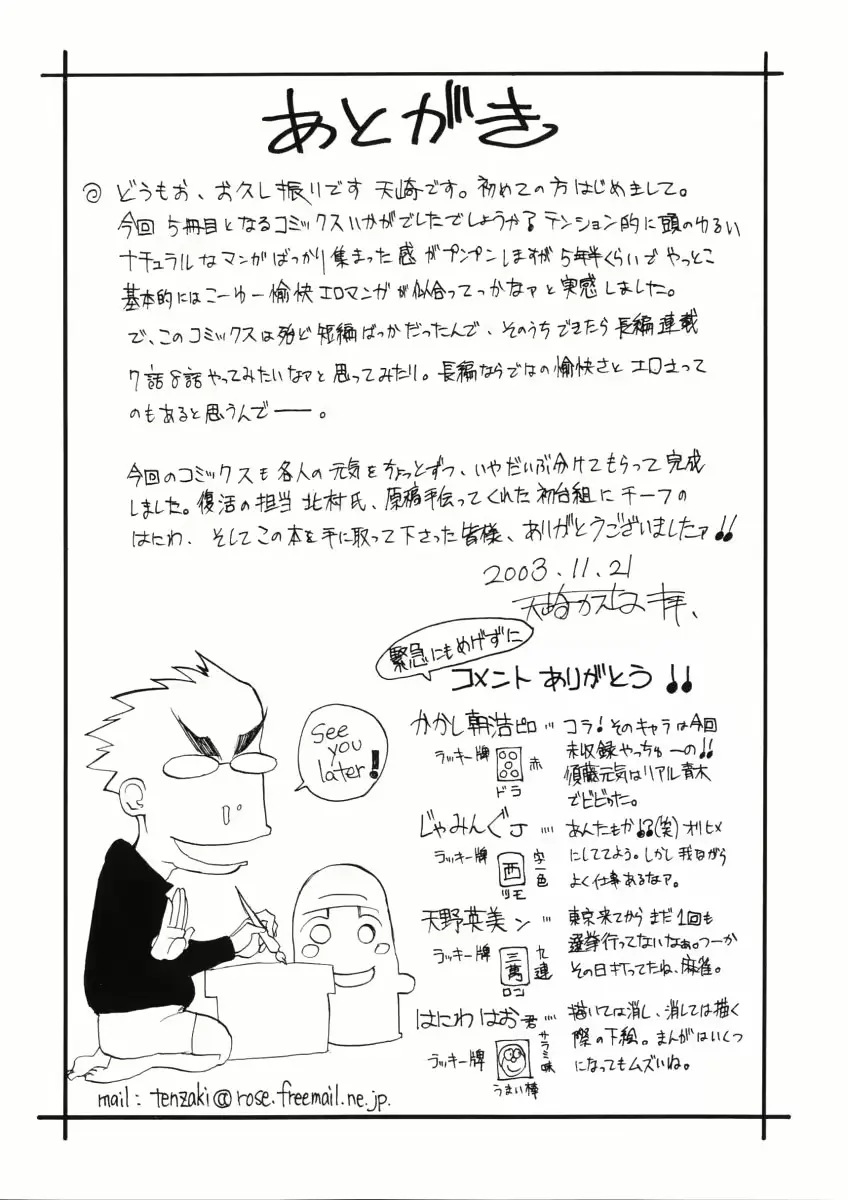 あとがき
◎ どうもお、お久し振りです 天崎です。初めての方はじめまして。
今回 5冊目となるコミックスいかがでしたでしょうかる テンション的に頭のゆるい
ナチュラルなマンガばっかり集まった感がプンプンしますが 5年半くらいで やっとこ
基本的にはこーゆー愉快エロマンガが似合ってっかなァと実感しました。
で、このコミックスは殆ど短編ばっかだったんで、そのうちできたら長編連載
7話8話やってみたいなァと思ってみたり。長編ならではの愉快さと エロさって
のもあると思うんで――。
今回のコミックスも各人の元気をちょっとずつ、いやだいぶ分けてもらって完成
しました。復活の担当 北村氏、原稿手伝ってくれた初台組にチーフの
はにわ、そしてこの本を手に取って下さった皆様、ありがとうございましたァ!!
2003.11.21
緊急にもめげずに
コメントありがとう!!
かかし朝浩ピロ…
ラッキー牌
赤
ドラ
コラ!そのキャラは今回
未収録やっちゅーの!!
須藤元気はリアル青木
でビビった。
じゃみんぐJ…
ラッキー牌
西
字一色
ツモ
あんたもか!?(笑)オリヒメ
にしててよう。しかし我ながら
よく仕事あるなァ。
天野英美ン…
ラッキー牌
三萬
九連
ロン
東京来てからまだ1回も
選挙行ってないなぁ。つーか
その日打ってたね、麻雀。
はにわはお君…
ラッキー牌
サラミ味
うまい棒
描いては消し、消しては描く
際の下絵。まんがはいくつ
になってもムズいね。
See
you
later!
mail: tenzaki@rose.freemail.ne.jp.